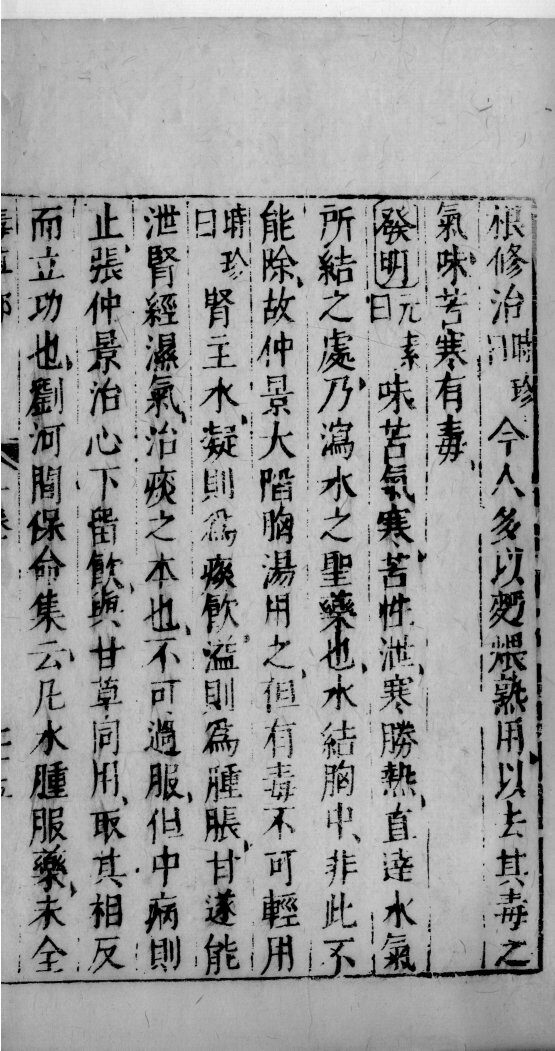 根修治時珍曰今人多以麪煨熟用以去其毒之
氣味苦寒有毒
發明元素曰味苦氣寒苦性泄寒勝熱直達水氣
所結之處乃瀉水之聖藥也水結胸中非此不
能除故仲景大陷胸湯用之但有毒不可輕用
時珍曰腎主水凝則爲痰飮溢則爲腫脹甘遂能
泄腎經濕氣治痰之本也不可過服但中病則
止張仲景治心下留飮與甘草同用取其相反
而立功也劉河間保命集云凡水腫服藥未全